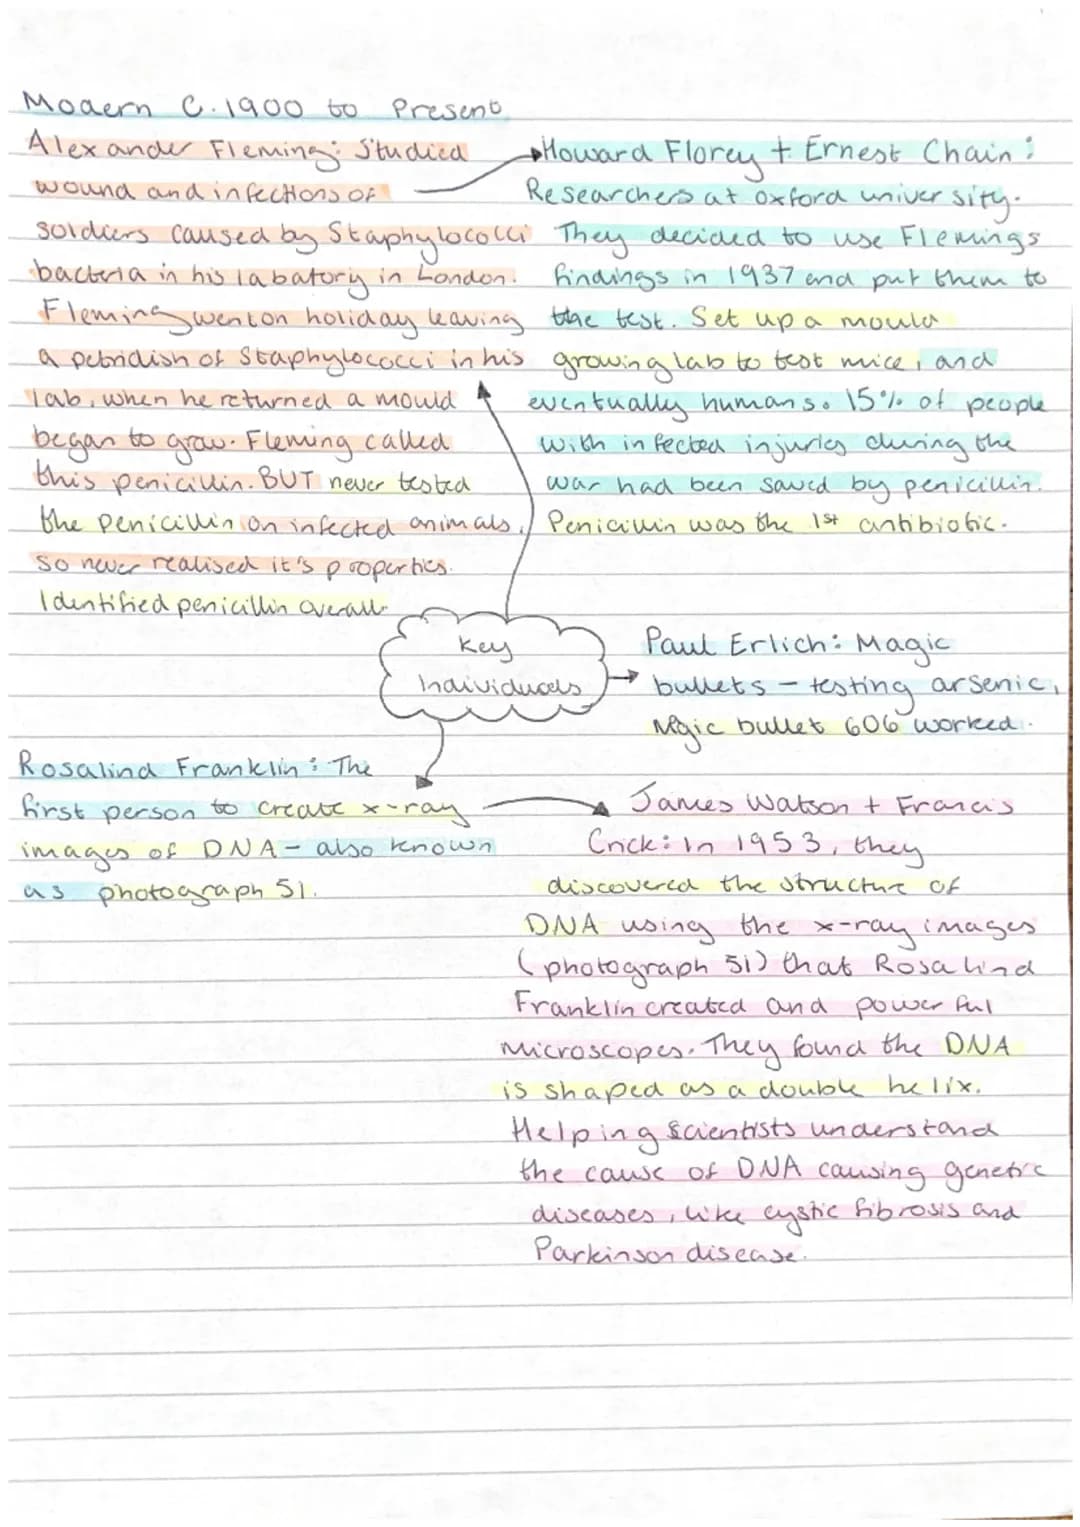 Modern C.1900 to Present
Alexander Fleming: Studied
wound and infections of
soldiers caused by Staphylococci
bacteria in his labatory in London.
Fleming went on holiday leaving
a petridish of Staphylococci in his
lab, when he returned a mould
began to grow. Fleming called
this penicillin. BUT never tested
the penicillin on infected animals,
so never realised it's properties.
Identified penicillin overall.
Howard Florey + Ernest Chain:
Researchers at oxford university.
They decided to use Flemings
findings in 1937 and put them to
the test. Set up a mould
growing lab to test mice, and
eventually humans. 15% of people
with infected injuries during the
war had been saved by penicillin.
Penicillin was the 1st antibiotic.
Key
Individuals
Paul Erlich: Magic
bullets - testing arsenic,
Mgic bullet 606 worked.
Rosalind Franklin: The
first person to create x-ray
images of DNA - also known
as photograph 51.
James Watson + Francis
Crick: In 1953, they
discovered the structure of
DNA using the x-ray images
(photograph 51) that Rosalind
Franklin created and powerful
microscopes. They found the DNA
is shaped as a double helix.
Helping scientists understand
the cause of DNA causing genetic
diseases, like cystic fibrosis and
Parkinson disease.